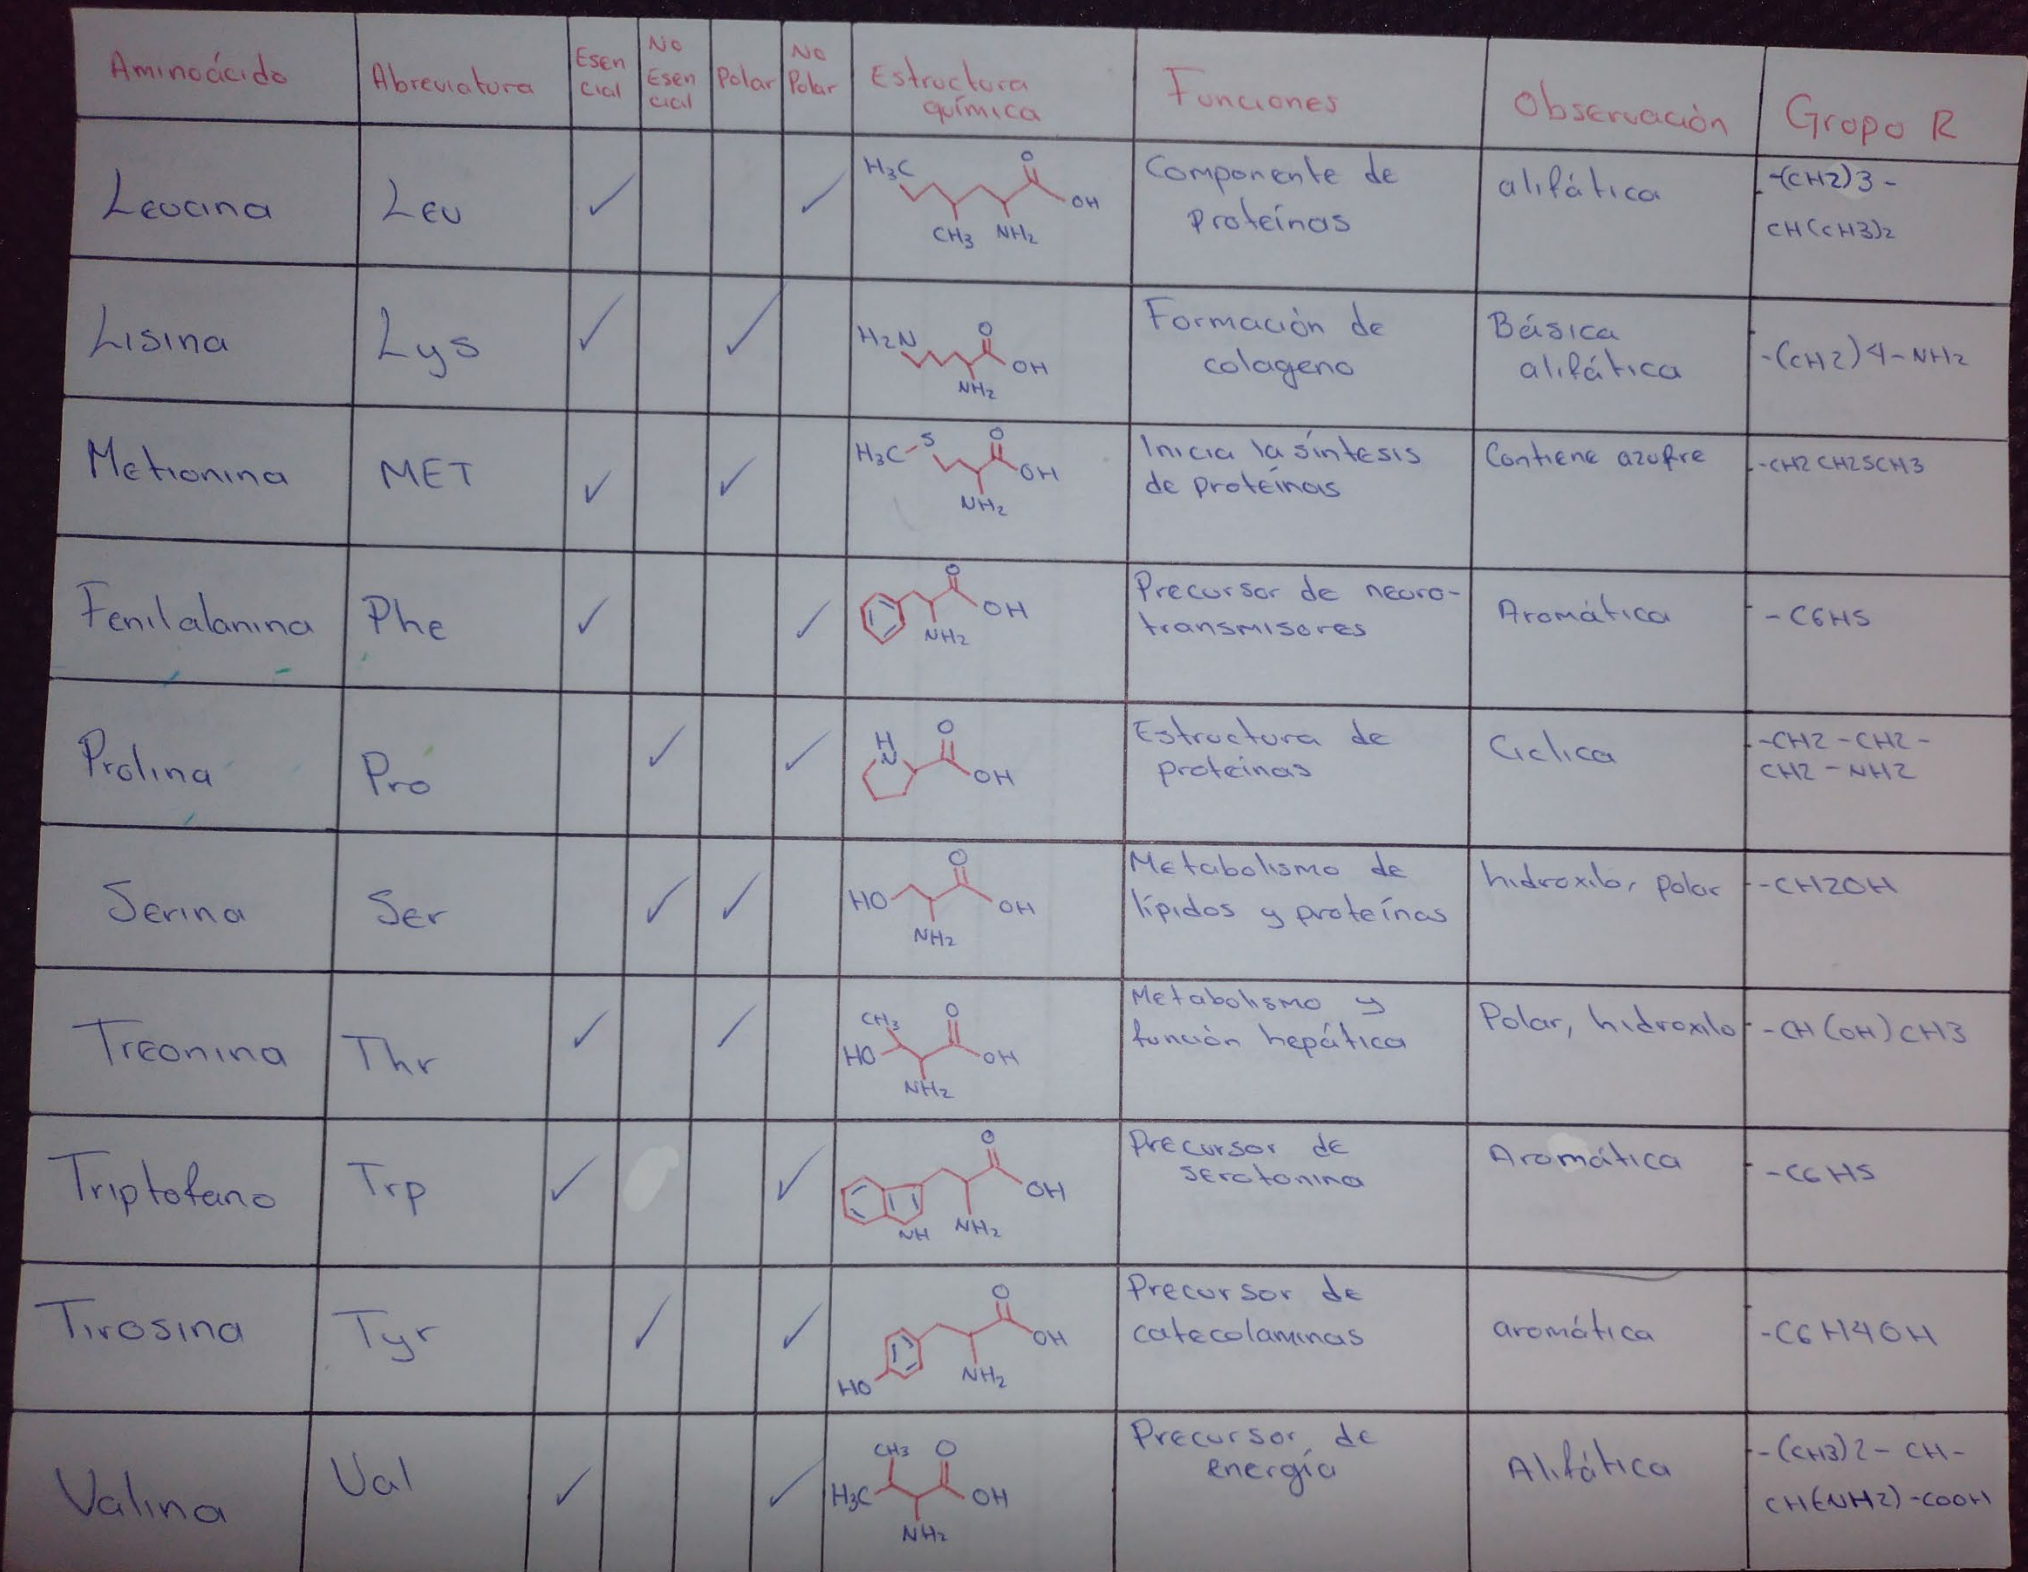 Aminoácido
Abreviatura
Esen
cial
No
Esen
cial
Polar
No
Polar
Estructura
química
Funciones
Observación
Grupo R
Leucina
Leu
✓
✓
H₃C
O
OH
CH₃ NH₂
Componente de
proteínas
alifática
-(CH2)3-
CH(CH3)2
Lisina
Lys
✓
✓
H₂N
O
OH
NH₂
Formación de
colageno
Básica
alifática
-(CH2)4-NH2
Metionina
MET
✓
✓
H₃C-S
O
OH
NH₂
Inicia la síntesis
de proteínas
Contiene azufre
-CH2CH2SCH3
Fenilalanina
Phe
✓
✓
O
OH
NH₂
Precursor de neuro-
transmisores
Aromática
-C6H5
Prolina
Pro
✓
✓
H
N
O
OH
Estructura de
proteínas
Ciclica
-CH2-CH2-
CH2-NH2
Serina
Ser
✓
✓
HO
O
OH
NH₂
Metabolismo de
lípidos y proteínas
hidroxilo, polar
-CH2OH
Treonina
Thr
✓
✓
CH₃
O
HO
OH
NH₂
Metabolismo y
función hepática
Polar, hidroxilo
-CH(OH)CH3
Triptofano
Trp
✓
✓
O
OH
NH
NH₂
Precursor de
serotonina
Aromática
-C6H5
Tirosina
Tyr
✓
✓
O
OH
NH₂
HO
Precursor de
catecolaminas
aromática
-C6H4OH
Valina
Val
✓
✓
CH₃
O
H₃C
OH
NH₂
Precursor de
energía
Alifática
-(CH3)2-CH-
CH(NH2)-COOH